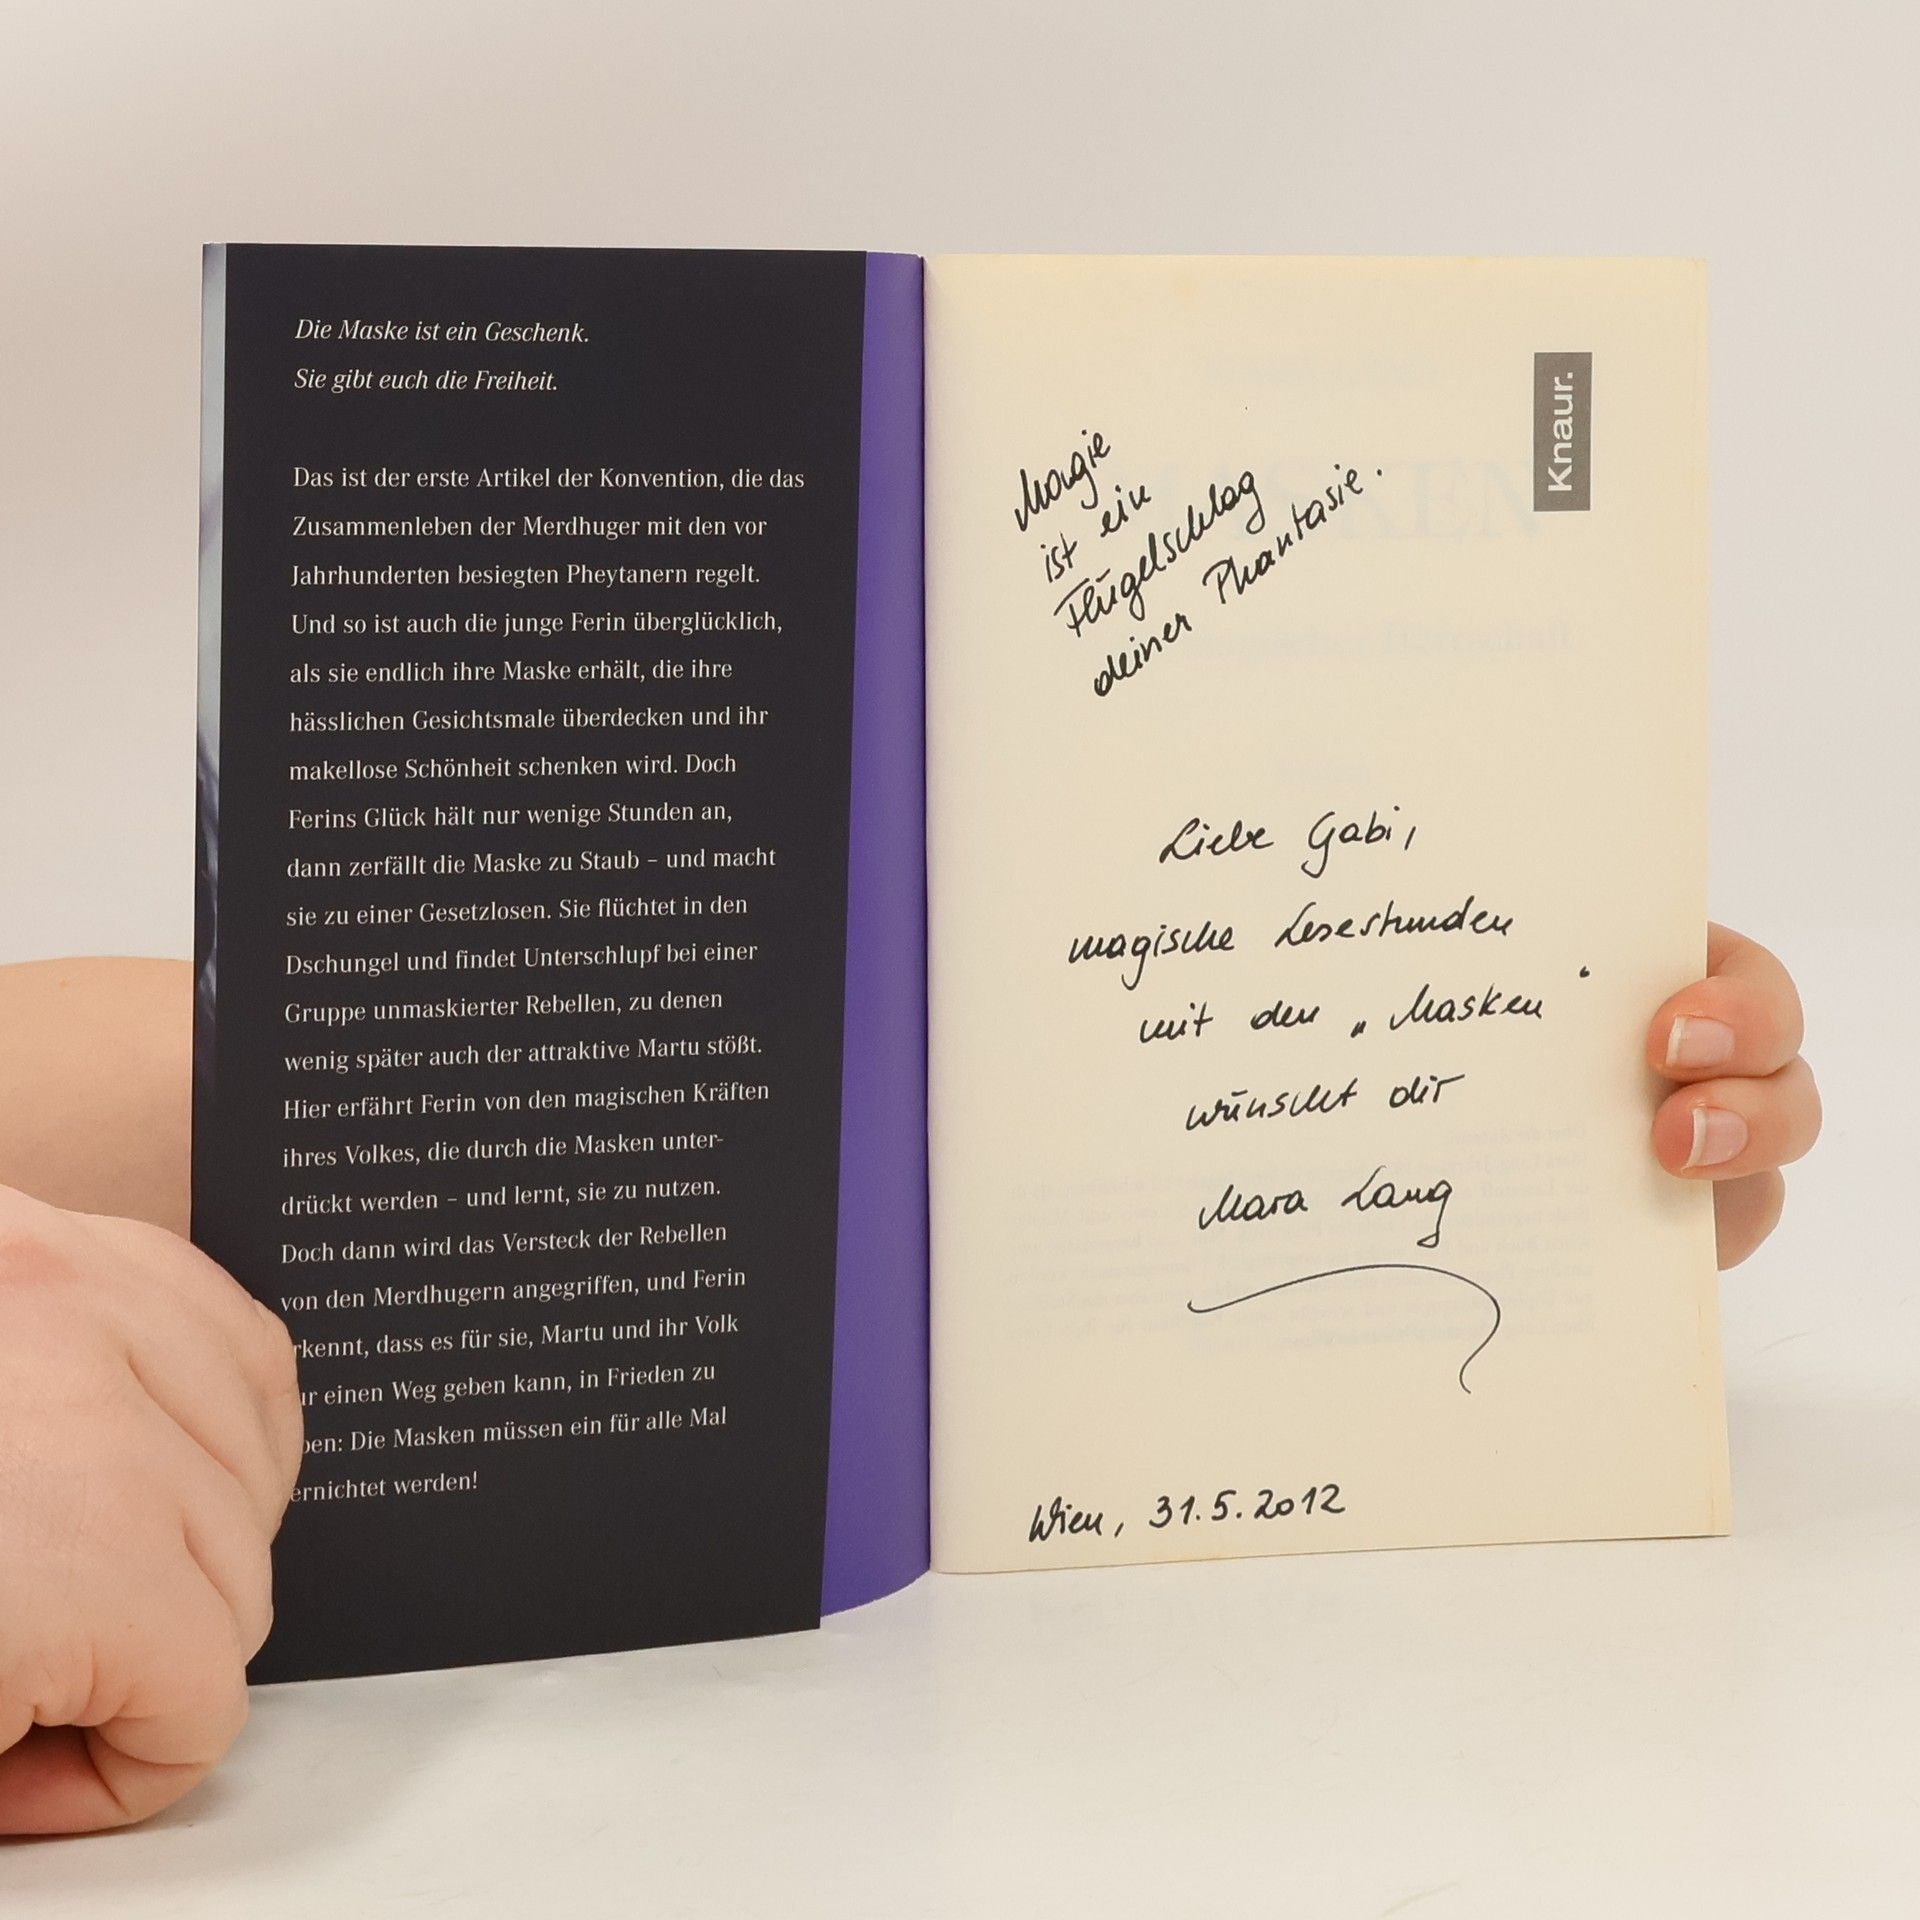 Die Maske ist ein Geschenk.
Sie gibt euch die Freiheit.
Das ist der erste Artikel der Konvention, die das
Zusammenleben der Merdhuger mit den vor
Jahrhunderten besiegten Pheytanern regelt.
Und so ist auch die junge Ferin überglücklich,
als sie endlich ihre Maske erhält, die ihre
hässlichen Gesichtsmale überdecken und ihr
makellose Schönheit schenken wird. Doch
Ferins Glück hält nur wenige Stunden an,
dann zerfällt die Maske zu Staub – und macht
sie zu einer Gesetzlosen. Sie flüchtet in den
Dschungel und findet Unterschlupf bei einer
Gruppe unmaskierter Rebellen, zu denen
wenig später auch der attraktive Martu stößt.
Hier erfährt Ferin von den magischen Kräften
ihres Volkes, die durch die Masken unter-
drückt werden – und lernt, sie zu nutzen.
Doch dann wird das Versteck der Rebellen
von den Merdhugern angegriffen, und Ferin
rkennt, dass es für sie, Martu und ihr Volk
ur einen Weg geben kann, in Frieden zu
ben: Die Masken müssen ein für alle Mal
ernichtet werden!
Knaur.
Magie
ist ein
Flügelschlag
deiner Phantasie.
Liebe Gabi,
magische Lesestunden
mit den „Masken“
wünscht dir
Mara Lang
Wien, 31.5.2012